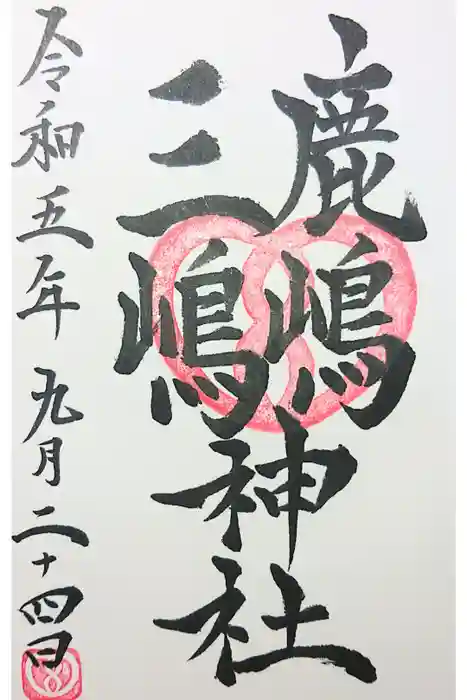 鹿嶋
三嶋
神社
令和五年九月二十四日